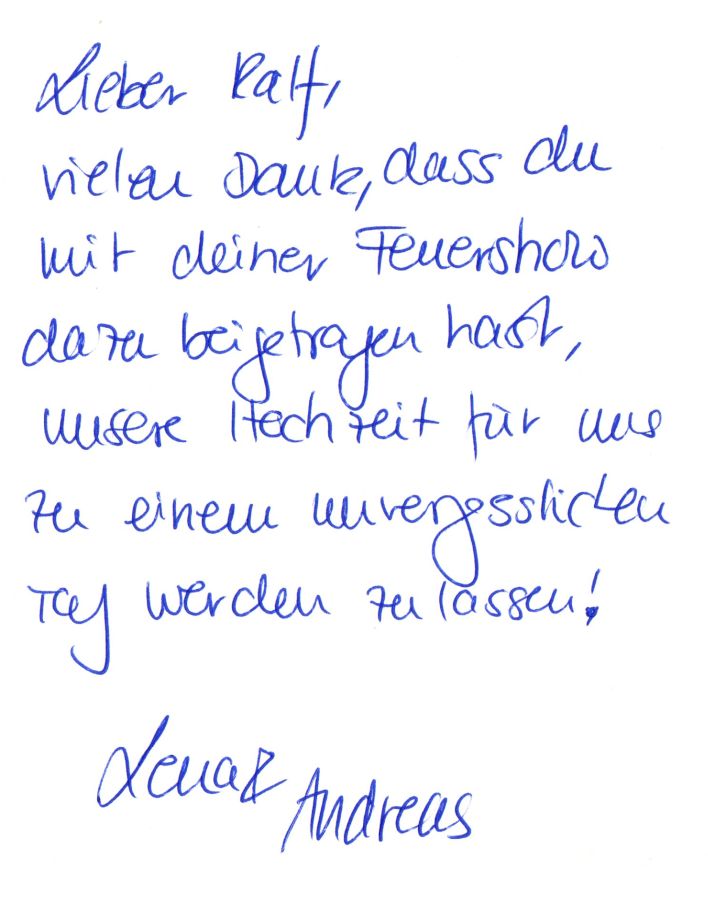 Lieber Ralf,
vielen Dank, dass du
mit deiner Feuershow
dazu beigetragen hast,
unsere Hochzeit für uns
zu einem unvergesslichen
Tag werden zu lassen!
Lena & Andreas